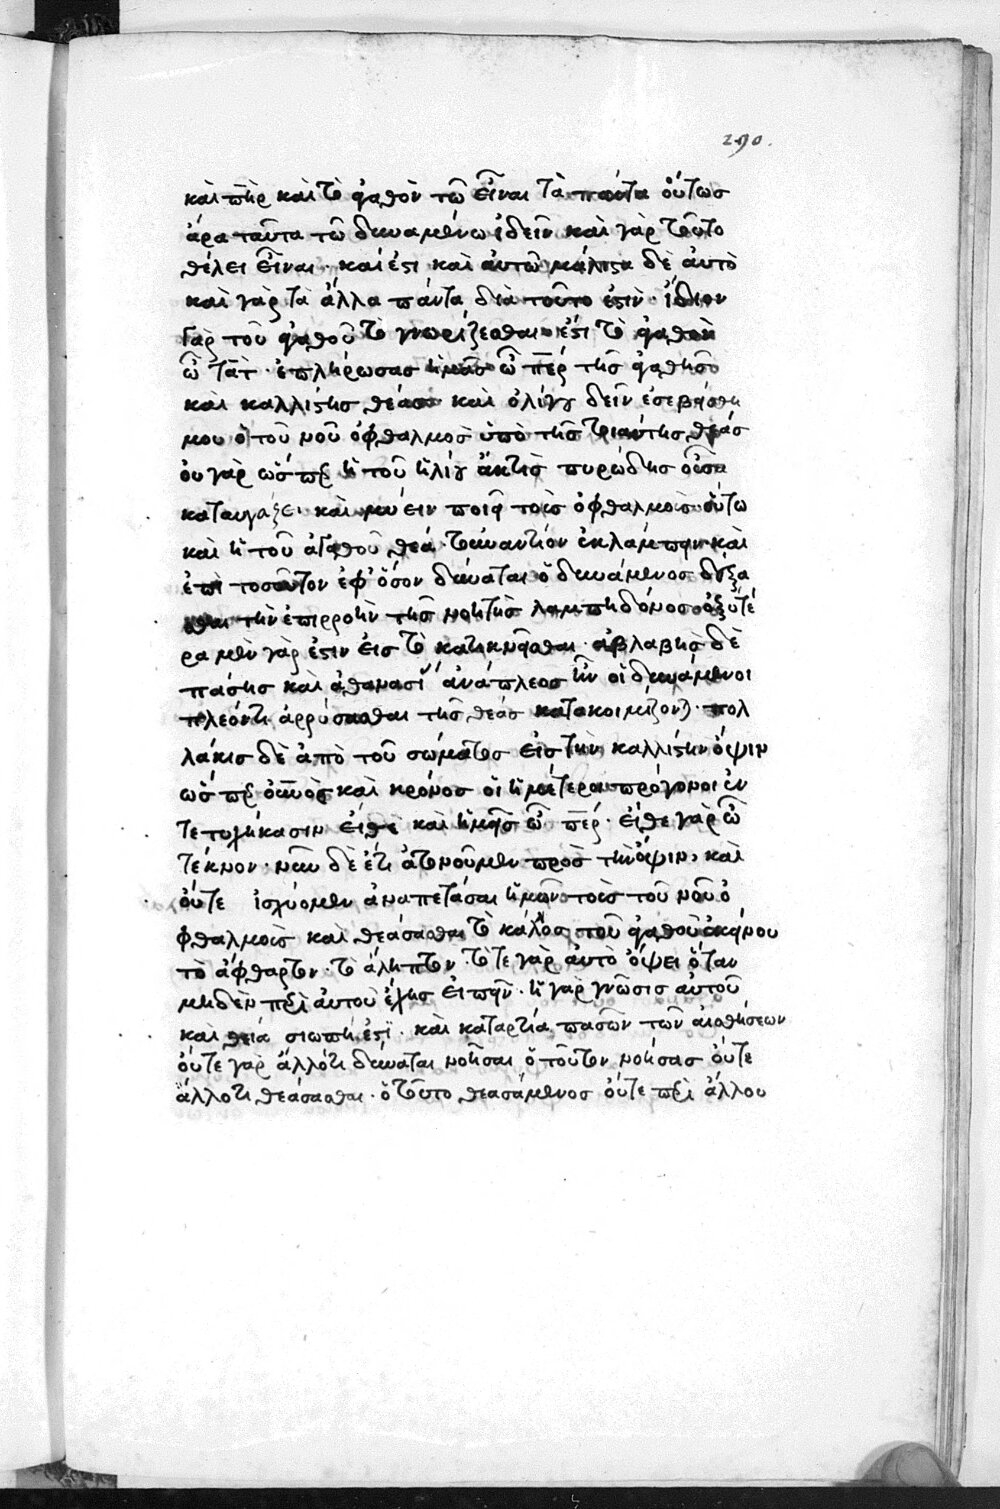 290.
καὶ πὴρ καὶ τὸ ἀγαθὸν τῶ εἶναι τὰ πάντα οὕτως
ἄρα ταῦτα τῶ δυναμένω ἰδεῖν καὶ γὰρ τοῦτο
θέλει εἶναι. καί ἐστι καὶ αὐτῶ μάλιστα δὲ αὐτὸ
καὶ γὰρ τὰ ἄλλα πάντα διὰ τοῦτο ἐστὶν. ἴδιον
γὰρ τοῦ ἀγαθοῦ τὸ γνωρίζεσθαι ἐστὶ τὸ ἀγαθὸν
ὦ τὰτ. ἐπλήρωσας ἡμᾶς ὦ πὲρ τῆς ἀγαθῆς
καὶ καλλίστης θέας καὶ ὀλίγου δεῖν ἐσεβάσθη
μου ὁ τοῦ νοῦ ὀφθαλμὸς ὑπὸ τῆς τοιαύτης θέας
οὐ γὰρ ὥσπερ ἡ τοῦ ἡλίου ἀκτὶς πυρώδης οὖσα
καταυγάζει καὶ μύειν ποιεῖ τοὺς ὀφθαλμοὺς οὕτω
καὶ ἡ τοῦ ἀγαθοῦ θέα. τοὐναντίον ἐκλάμπει καὶ
ἐπὶ τοσοῦτον ἐφ' ὅσον δύναται ὁ δυνάμενος δέξα
σθαι τὴν ἐπιρροὴν τῆς νοητῆς λαμπηδόνος ὀξυτέ
ρα μὲν γάρ ἐστιν εἰς τὸ κατικνεῖσθαι. ἀβλαβὴς δὲ
πάσης καὶ ἀθανασίας ἀνάπλεος ἣν οἱ δυνάμενοι
πλέον τι ἀρρύσασθαι τῆς θέας κατακοιμίζονται. πολ
λάκις δὲ ἀπὸ τοῦ σώματος εἰς τὴν καλλίστην ὄψιν
ὥσπερ οὐνὸς καὶ κρόνος οἱ ἡμέτεροι πρόγονοι ἐν
τετυχήκασιν εἴθε καὶ ἡμεῖς ὦ πέρ. εἴθε γὰρ ὦ
τέκνον. νῦν δὲ ἔτι ἀτονοῦμεν πρὸς τὴν ὄψιν, καὶ
οὔτε ἰσχύομεν ἀναπετάσαι ἡμῶν τοὺς τοῦ νοῦ ὀ
φθαλμοὺς καὶ θεάσασθαι τὸ κάλλος τοῦ ἀγαθοῦ ἐκείνου
τὸ ἄφθαρτον. τὸ ἄληπτον. τότε γὰρ αὐτὸ ὄψει ὅταν
μηδὲν περὶ αὐτοῦ ἔχης εἰπεῖν. ἡ γὰρ γνῶσις αὐτοῦ
καὶ θεία σιωπή ἐστι. καὶ καταργία πασῶν τῶν αἰσθήσεων
οὔτε γὰρ ἄλλό τι δύναται νοῆσαι ὁ τοῦτον νοήσας οὔτε
ἄλλο τι θεάσασθαι. ὁ τοῦτο θεασάμενος οὔτε περὶ ἄλλου